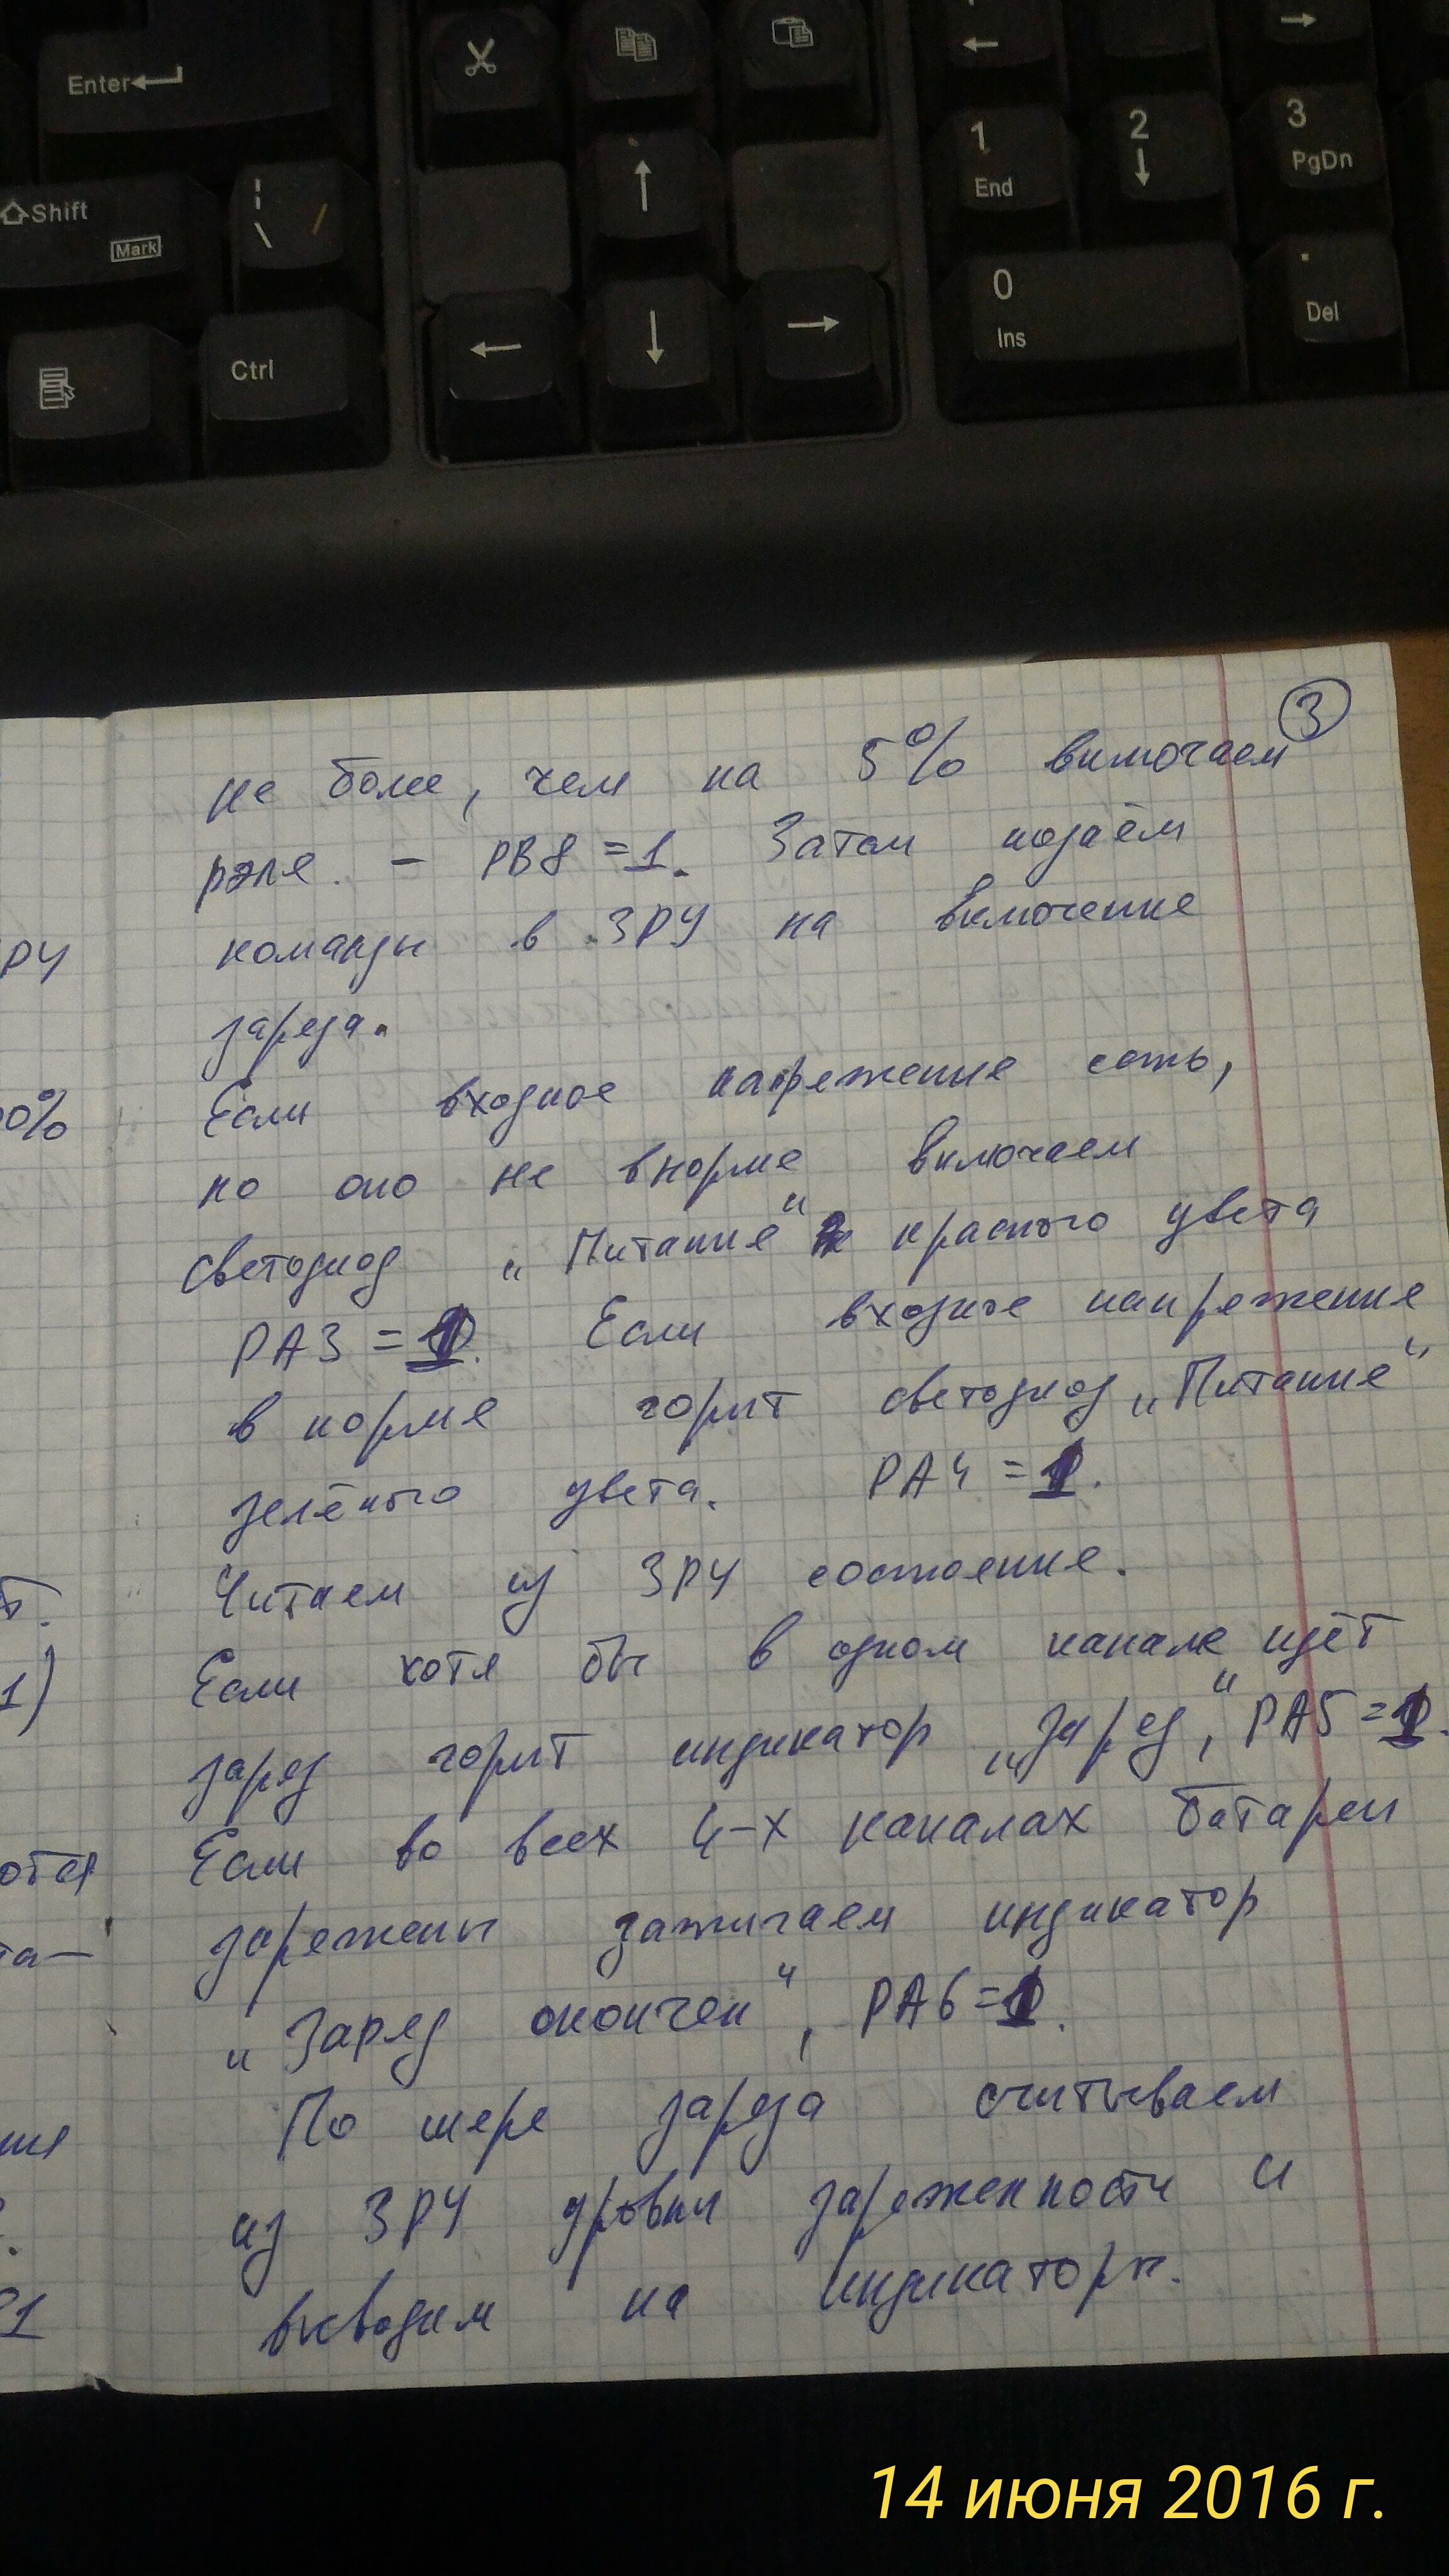 Enter
Shift
Mark
\ /
Ctrl
1
End
2
3
PgDn
0
Ins
.
Del
3
не более, чем на 5% включаем
рэле. – PB8 = 1. Затем подаём
команды в ЗРУ на включение
заряда.
Если входное напряжение есть,
но оно не в норме включаем
светодиод „Питание“ красного цвета
PA3 = 1. Если входное напряжение
в норме горит светодиод „Питание“
зелёного цвета. PA4 = 1.
Читаем из ЗРУ состояние.
Если хотя бы в одном канале идёт
заряд горит индикатор „Заряд“, PA5 = 1.
Если во всех 4-х каналах батареи
заряжены зажигаем индикатор
„Заряд окончен“, PA6 = 1.
По мере заряда считываем
из ЗРУ уровни заряженности и
выводим на индикаторы.
РУ
0%
т.
1)
ются
та–
ния
1
14 июня 2016 г.